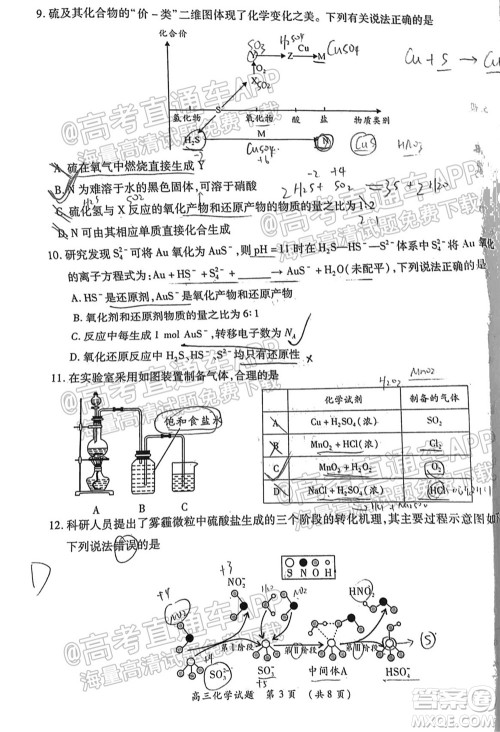 9. 硫及其化合物的“价－类”二维图体现了化学变化之美。下列有关说法正确的是
化合价
SO₃ H₂SO₄ Cu CuSO₄
Z M
O₂
X SO₂
S
氢化物 氧化物 酸 盐 物质类别
H₂S M N CuS
CuSO₄
+6
Cu + S → Cu
HNO₃
A. 硫在氧气中燃烧直接生成 Y
B. N 为难溶于水的黑色固体,可溶于硝酸
-2 +4
2H₂S + SO₂ = 3S + 2H₂O
H₂S SO₂
C. 硫化氢与 X 反应的氧化产物和还原产物的物质的量之比为 1:2
2:1
D. N 可由其相应单质直接化合生成
10. 研究发现 S₄²⁻ 可将 Au 氧化为 AuS⁻,则 pH = 11 时在 H₂S—HS⁻—S²⁻ 体系中 S₄²⁻ 将 Au 氧化
的离子方程式为: Au + HS⁻ + S₄²⁻ + ____ → AuS⁻ + H₂O(未配平),下列说法正确的是
A. HS⁻ 是还原剂,AuS⁻ 是氧化产物和还原产物
B. 氧化剂和还原剂物质的量之比为 6:1
C. 反应中每生成 1 mol AuS⁻,转移电子数为 N_A
D. 反应中的 H₂S、HS⁻、S²⁻ 均只有还原性 ×
11. 在实验室采用如图装置制备气体,合理的是
H₂O₂ MnO₂
饱和食盐水
化学试剂 制备的气体
A Cu + H₂SO₄(浓) SO₂
B MnO₂ + HCl(浓) Cl₂
C MnO₂ + H₂O₂ O₂
D NaCl + H₂SO₄(浓) HCl
12. 科研人员提出了雾霾微粒中硫酸盐生成的三个阶段的转化机理,其主要过程示意图如
下列说法错误的是
D
S N O H
+4 +3
NO₂ NO₂⁻ H₂O NO₂ HNO₂
第Ⅰ阶段 第Ⅱ阶段 第Ⅲ阶段
SO₃²⁻ SO₃⁻ 中间体A HSO₄⁻
+4 +5
高三化学试题 第 3 页 (共 8 页)
@高考直通车APP
海量高清试题下载
@高考直通车APP
海量高清试题下载
@高考直通车APP
海量高清试题下载